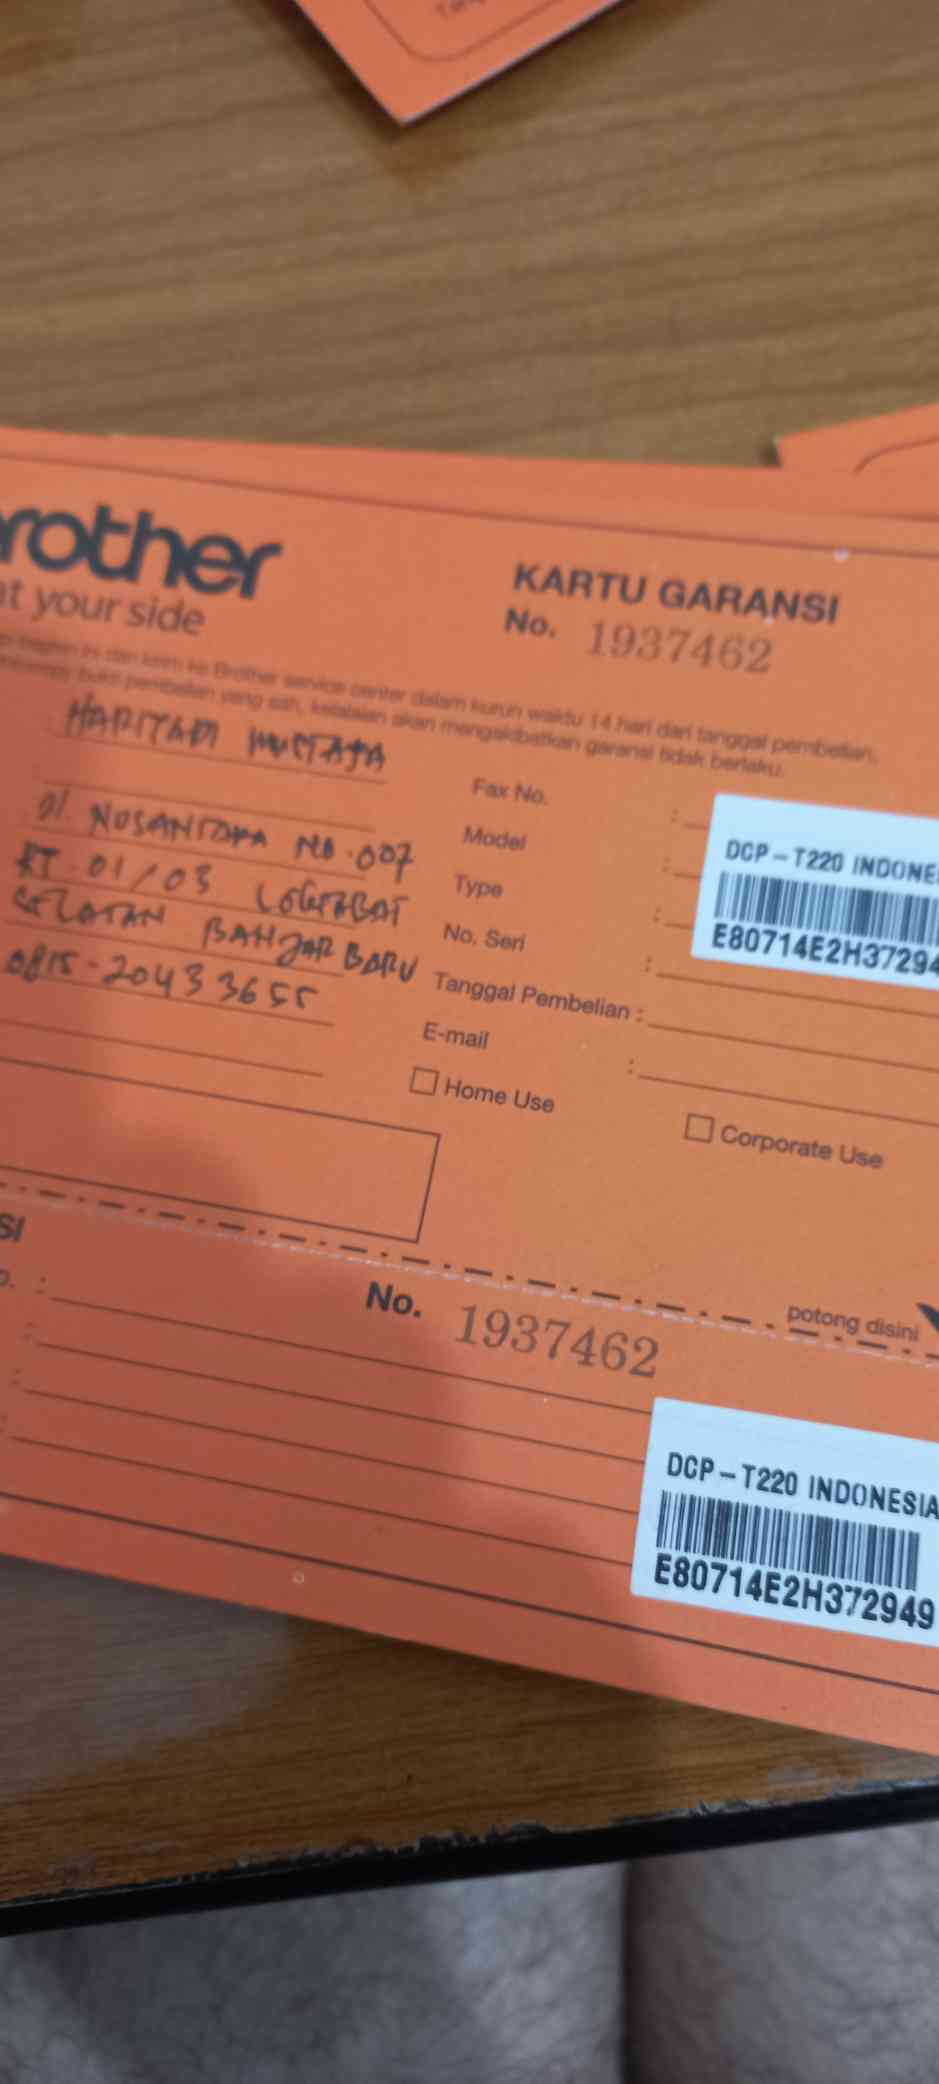 brother
at your side
KARTU GARANSI
No. 1937462
bagian ini dan kirim ke Brother service center dalam kurun waktu 14 hari dari tanggal pembelian,
bukti pembelian yang sah, kelalaian akan mengakibatkan garansi tidak berlaku.
HARIYADI MUSTAFA
Jl. NUSANTARA NO.007
RT.01/03 LOKTABAT
SELATAN BANJAR BARU
0815-20433655
Fax No. :
Model :
Type :
No. Seri :
Tanggal Pembelian :
E-mail :
DCP-T220 INDONE
E80714E2H37294
Home Use
Corporate Use
potong disini
SI
No. 1937462
DCP-T220 INDONESIA
E80714E2H372949